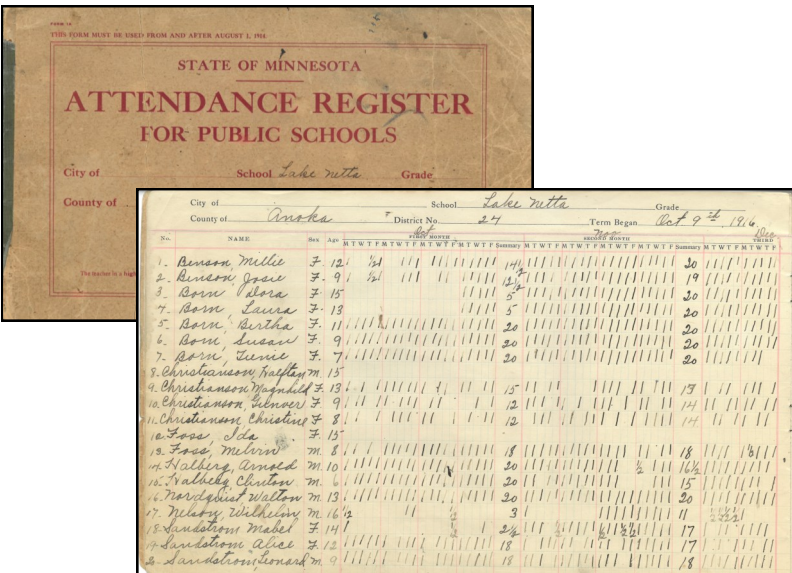 FORM 18
THIS FORM MUST BE USED FROM AND AFTER AUGUST 1, 1914
STATE OF MINNESOTA
ATTENDANCE REGISTER
FOR PUBLIC SCHOOLS
City of School Lake Netta Grade
County of
The teacher is a high
City of School Lake Netta Grade
County of Anoka District No. 24 Term Began Oct 9th, 1916
Oct Nov Dec
FIRST MONTH SECOND MONTH THIRD
No. NAME Sex Age M T W T F M T W T F M T W T F M T W T F Summary M T W T F M T W T F M T W T F M T W T F Summary M T W T F M T W T F
1- Benson, Millie F. 12 14½ 20
2- Benson, Josie F. 9 12½ 19
3- Born Dora F. 15 5 20
4- Born, Laura F. 13 5 20
5- Born, Birtha F. 11 20 20
6- Born, Susan F. 9 20 20
7- Born, F. 7 20 20
8. Christianson, m. 15
9. Christianson F. 13 15
10. Christianson, F. 9 12 14
11. Christianson Christine F. 8 12 14
12. Foss, Ida F. 15
13. Foss, Melvin m. 8 18 18
14. Halberg, Arnold m. 10 20 16½
15. Halberg Clinton m. 6 20 15
16. Nordquist Walton m. 13 20 20
17. Nelson, Wilhelm m. 16 3 11
18. Sandstrom Mabel F. 14 2½ 17
19. Sandstrom Alice F. 12 18 17
20. Sandstrom, Leonard m. 9 18 18